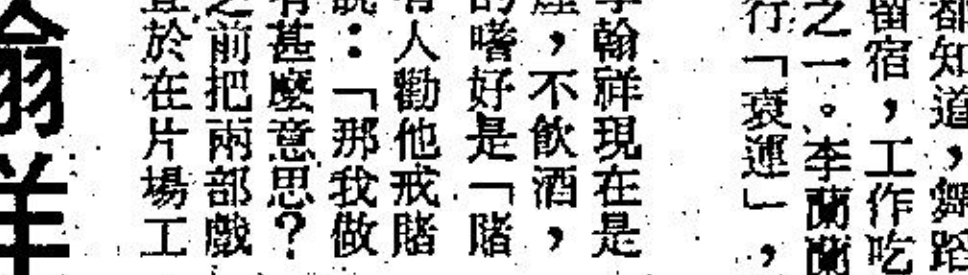 都知道，舞蹈
留宿，工作吃
之一。李蘭蘭
行「衰運」，
李翰祥現在是
，不飲酒，
的嗜好是「賭
有人勸他戒賭
說：「那我做
有甚麼意思？
之前把兩部戲
於在片場工
翰祥